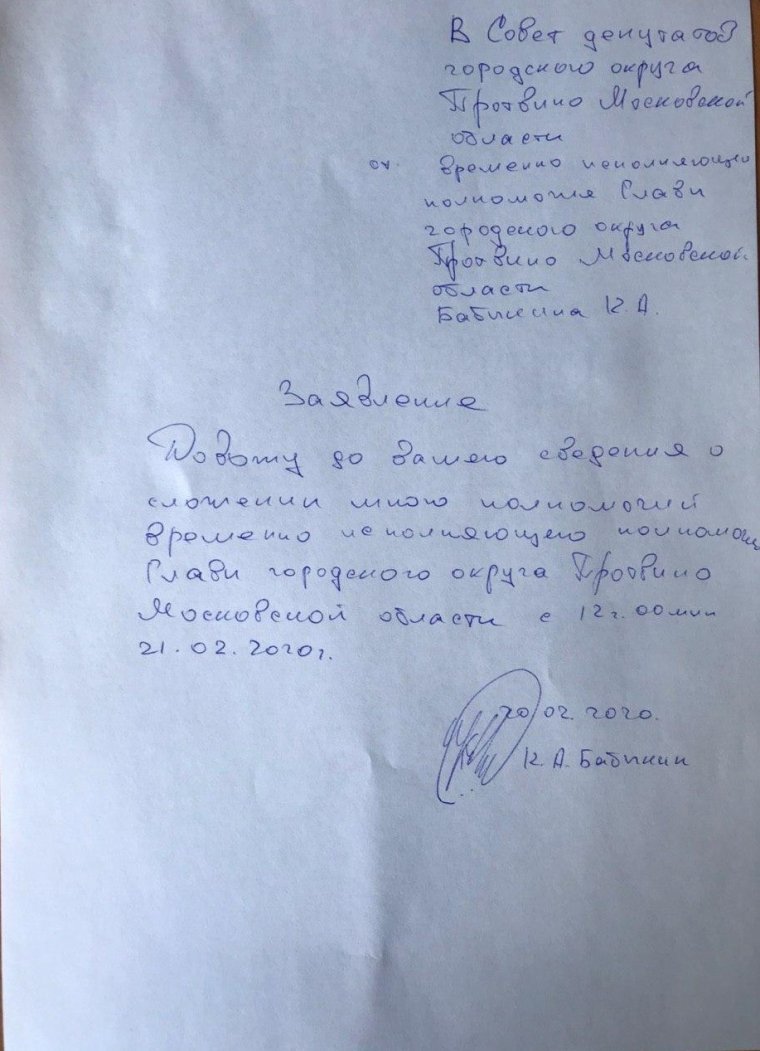 В Совет депутатов
городского округа
Протвино Московской
области
от временно исполняющего
полномочия Главы
городского округа
Протвино Московской
области
Бабикина К.А.
Заявление
Довожу до вашего сведения о
сложении мною полномочий
временно исполняющего полномочия
Главы городского округа Протвино
Московской области с 12 ч. 00 мин
21.02.2020г.
20.02.2020.
К.А. Бабикин